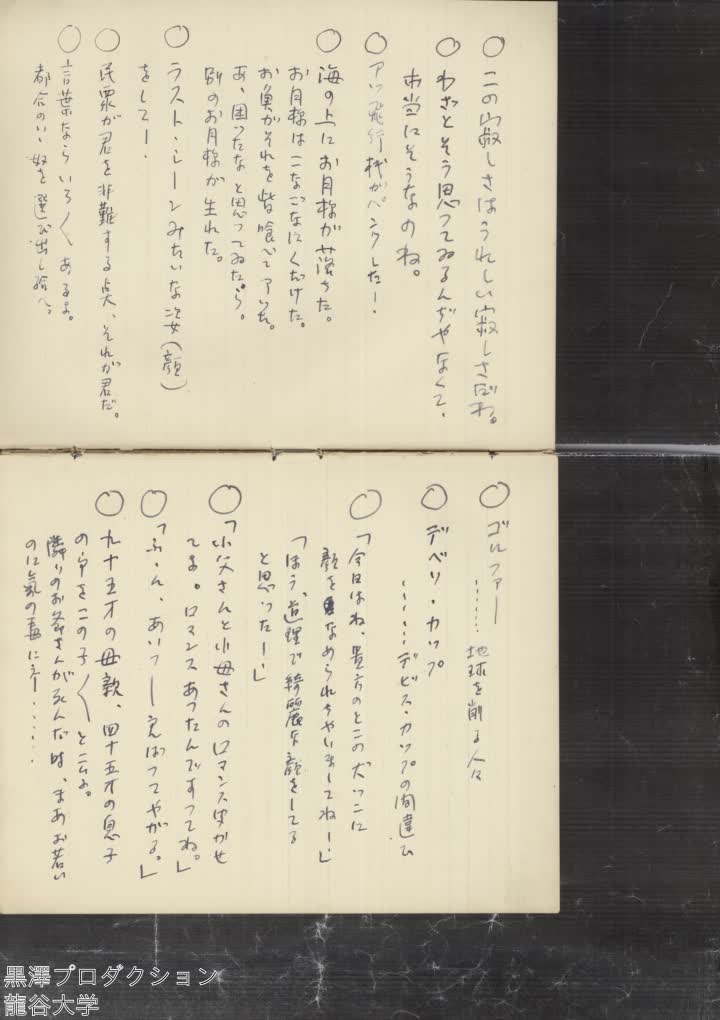 ○ この寂しさはうれしい寂しさだわ。
○ わざとそう思ってゐるんぢやなくて、
本当にそうなのね。
○ アツ飛行機がパンクしたー・
○ 海の上にお月様が落ちた。
お月様はこなごなにくだけた。
お魚がそれを皆喰べてアいた。
あ、困ったなと思ってゐたら。
別のお月様が生れた。
○ ラスト・シーンみたいな姿(顔)
をしてー・
○ 民衆が君を非難する点、それが君だ。
○ 言葉ならいろ〱あるよ。
都合のいゝ奴を選び出し給へ。
○ ゴルファー
………地球を削る人々
○ デベソ・カップ
………デビス・カップの間違ひ
○ 「今日はね、貴方のとこの犬ッコに
顔をなめられちやいましてねー」
「ほう、道理で綺麗な顔をしてる
と思ったー」
○ 「小父さんと小母さんのロマンス聞かせ
てよ。ロマンスあったんですってね。」
○ 「ふーん、あいつー え ばってやがる。」
○ 九十五才の母親、四十五才の息子
の事をこの子〱と云ふ。
隣りのお爺さんが死んだ時、まあお若い
のに氣の毒にえー……
黒澤プロダクション
龍谷大学